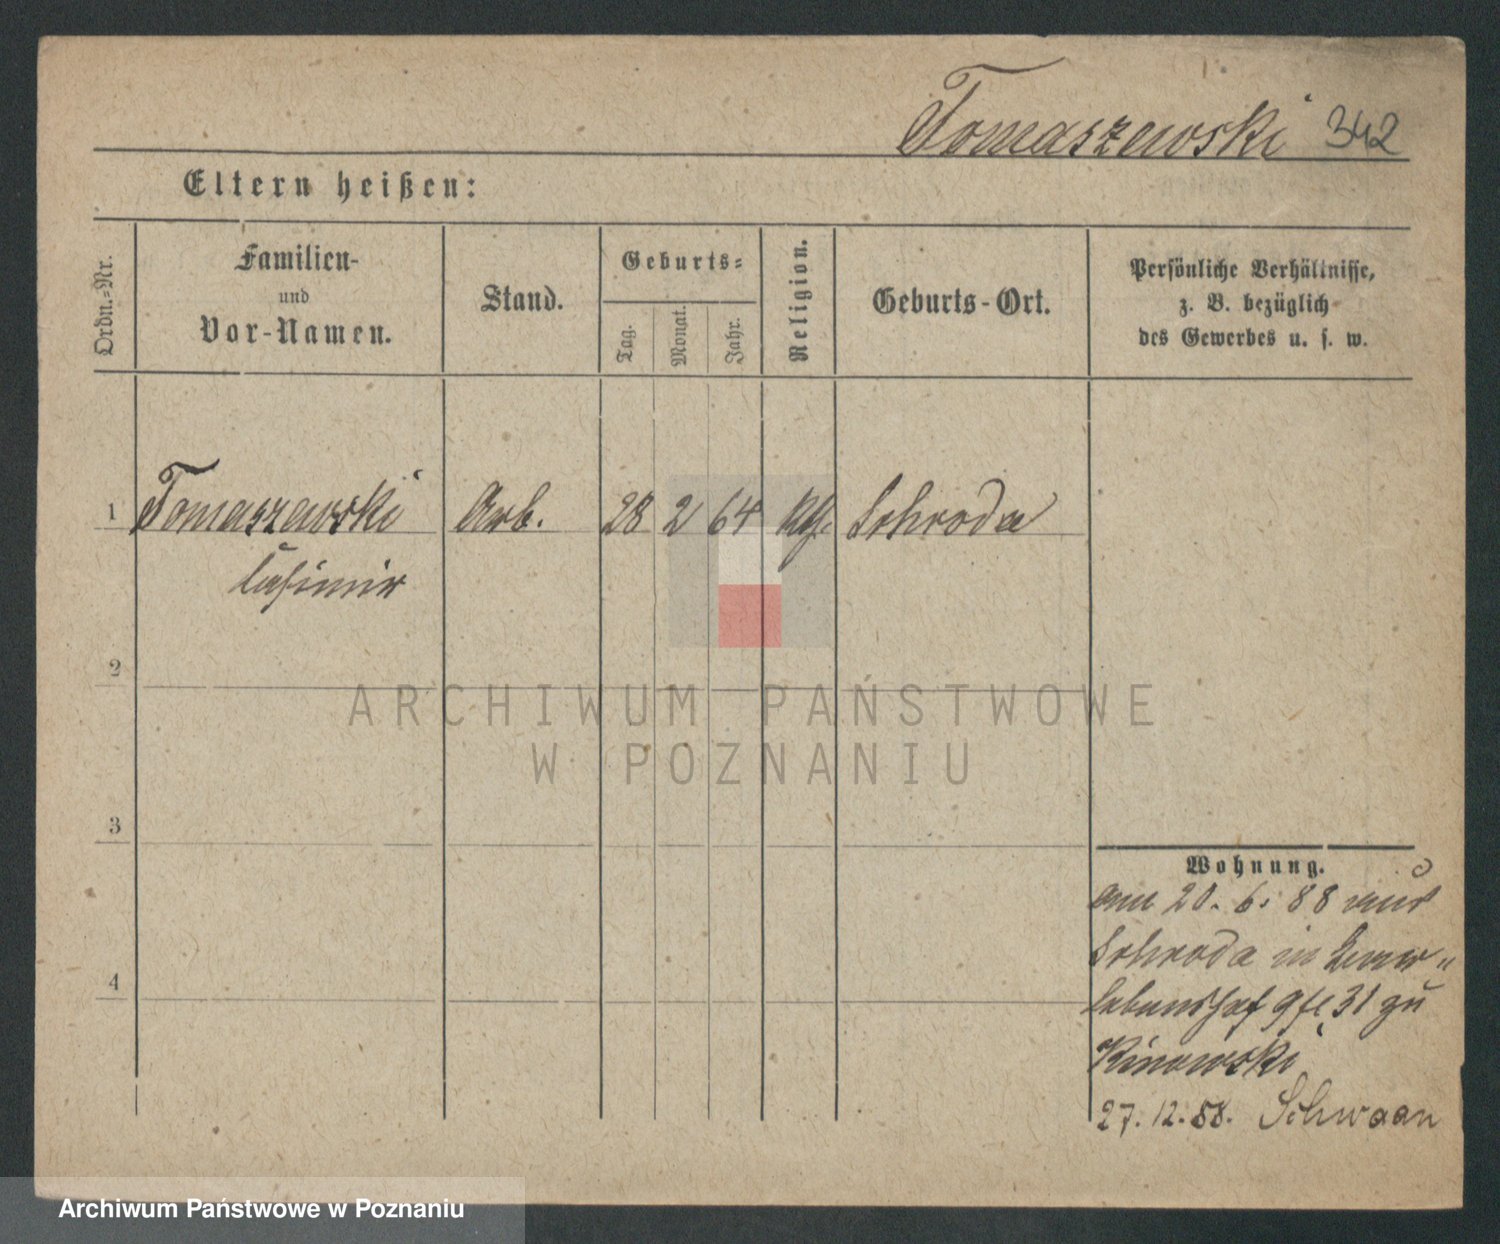 Tomaszewski 342
Eltern heißen:
Ordn.-Nr.
Familien-
und
Vor-Namen.
Stand.
Geburts-
Tag.
Monat.
Jahr.
Religion.
Geburts-Ort.
Persönliche Verhältnisse,
z. B. bezüglich
des Gewerbes u. s. w.
1 Tomaszewski Arb. 28 2 64 kth. Schroda
Casimir
2
ARCHIWUM PAŃSTWOWE
W POZNANIU
3
Wohnung.
am 20. 6. 88 aus
Schroda in
4
31 zu
Kinowski
27. 12. 88. Schwaan
Archiwum Państwowe w Poznaniu